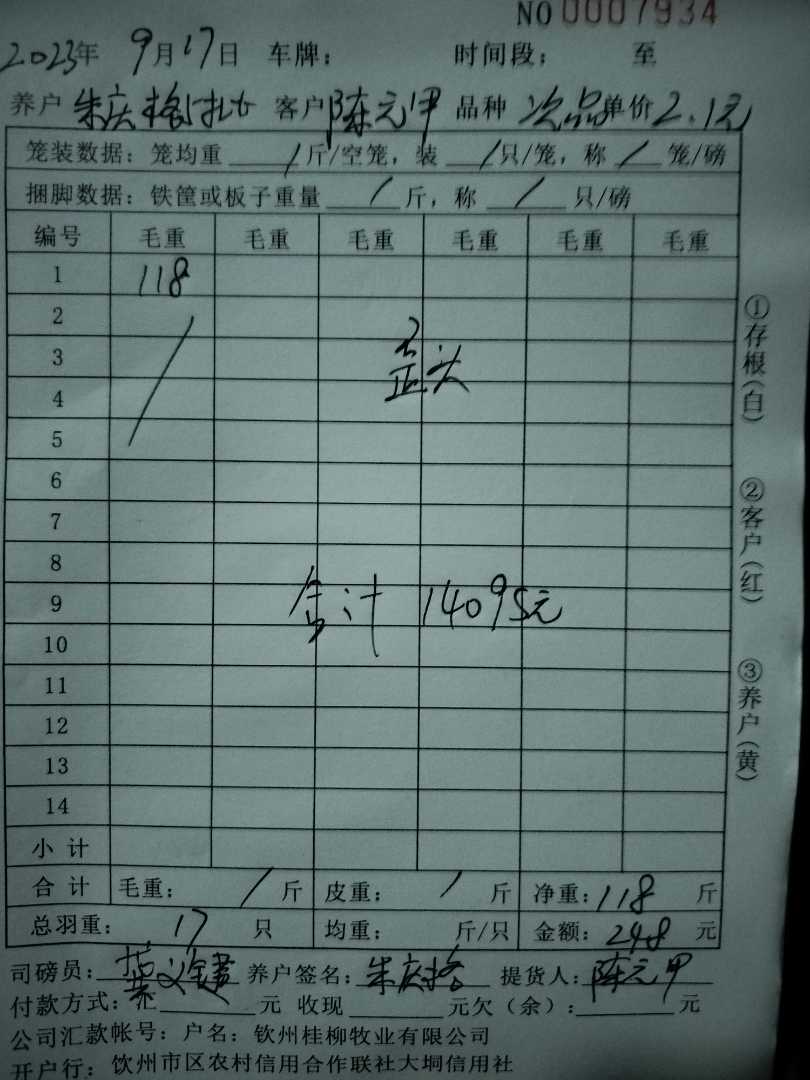 NO 0007934
2023年 9月17日 车牌： 时间段： 至
养户 朱庆格 客户 陈元甲 品种 次品 单价 2.1元
笼装数据：笼均重 / 斤/空笼，装 / 只/笼，称 / 笼/磅
捆脚数据：铁筐或板子重量 / 斤，称 / 只/磅
编号 毛重 毛重 毛重 毛重 毛重 毛重
1 118
2
3 歪头
4
5
6
7
8
9 合计 14095元
10
11
12
13
14
小计
合计 毛重： / 斤 皮重： / 斤 净重：118 斤
总羽重： 17 只 均重： 斤/只 金额：248 元
司磅员： 养户签名：朱庆格 提货人：陈元甲
付款方式：汇 元 收现 元欠（余）： 元
公司汇款帐号：户名：钦州桂柳牧业有限公司
开户行：饮州市区农村信用合作联社大垌信用社
①存根（白）
②客户（红）
③养户（黄）